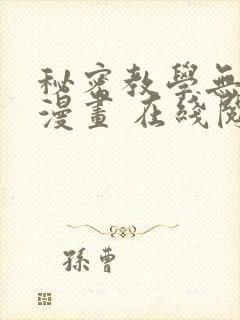 秘密教學無
漫畫 在綫閱
孫曹